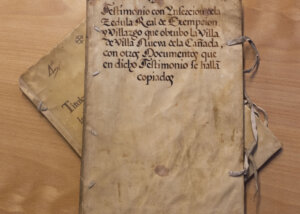 Testimonio con Insercion dela
Zedula Real de Exempcion
y Villazgo que obtubo la Villa
de Villa Nueva dela Cañada,
con otros Documentos que
en dicho Testimonio se hallan
copiados
Titulo